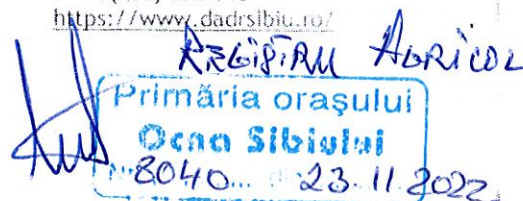 https://www.dadrsibiu.ro/
REGISTRU AGRICOL
Primăria orașului
Ocna Sibiului
Nr. 8040... 23.11.2022